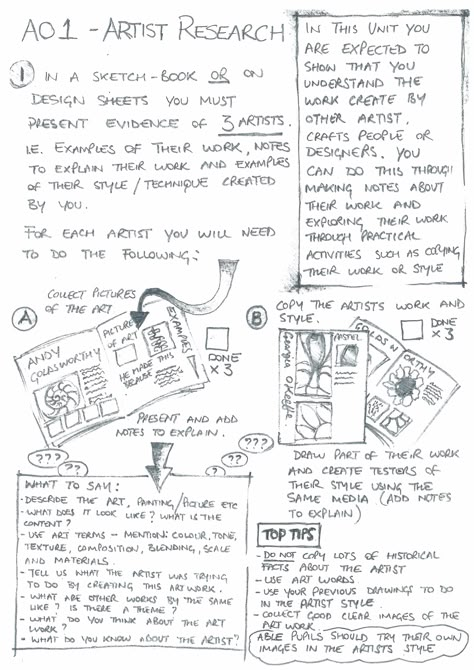 AO1 - ARTIST RESEARCH
1 IN A SKETCH-BOOK OR ON
DESIGN SHEETS YOU MUST
PRESENT EVIDENCE OF 3 ARTISTS.
I.E. EXAMPLES OF THEIR WORK, NOTES
TO EXPLAIN THEIR WORK AND EXAMPLES
OF THEIR STYLE / TECHNIQUE CREATED
BY YOU.
FOR EACH ARTIST YOU WILL NEED
TO DO THE FOLLOWING:
IN THIS UNIT YOU
ARE EXPECTED TO
SHOW THAT YOU
UNDERSTAND THE
WORK CREATE BY
OTHER ARTIST,
CRAFTS PEOPLE OR
DESIGNERS. YOU
CAN DO THIS THROUGH
MAKING NOTES ABOUT
THEIR WORK AND
EXPLORING THEIR WORK
THROUGH PRACTICAL
ACTIVITIES SUCH AS COPYING
THEIR WORK OR STYLE
COLLECT PICTURES
OF THE ART
A
ANDY
GOLDSWORTHY
PICTURES
OF ART
HE MADE THIS
BECAUSE
EXAMPLES
DONE
X 3
PRESENT AND ADD
NOTES TO EXPLAIN.
B COPY THE ARTISTS WORK AND
STYLE.
Georgia O'Keeffe
PASTEL
GOLDSWORTHY
DONE
X 3
DRAW PART OF THEIR WORK
AND CREATE TESTERS OF
THEIR STYLE USING THE
SAME MEDIA (ADD NOTES
TO EXPLAIN)
??
??
?
??
???
WHAT TO SAY:
- DESCRIBE THE ART, PAINTING/PICTURE ETC
- WHAT DOES IT LOOK LIKE? WHAT IS THE
CONTENT?
- USE ART TERMS - MENTION: COLOUR, TONE,
TEXTURE, COMPOSITION, BLENDING, SCALE
AND MATERIALS.
- TELL US WHAT THE ARTIST WAS TRYING
TO DO BY CREATING THIS ART WORK.
- WHAT ARE OTHER WORKS BY THE SAME
LIKE? IS THERE A THEME?
- WHAT DO YOU THINK ABOUT THE ART
WORK?
- WHAT DO YOU KNOW ABOUT THE ARTIST?
TOP TIPS
- DO NOT COPY LOTS OF HISTORICAL
FACTS ABOUT THE ARTIST
- USE ART WORDS
- USE YOUR PREVIOUS DRAWINGS TO DO
IN THE ARTIST STYLE.
- COLLECT GOOD CLEAR IMAGES OF THE
ART WORK.
ABLE PUPILS SHOULD TRY THEIR OWN
IMAGES IN THE ARTISTS STYLE